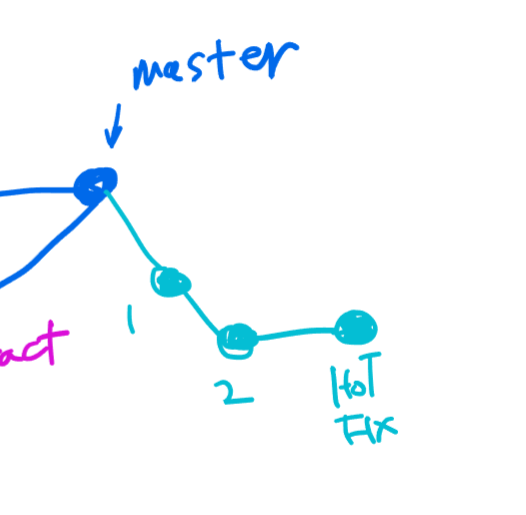 master
1
act
2
HoT
FIX